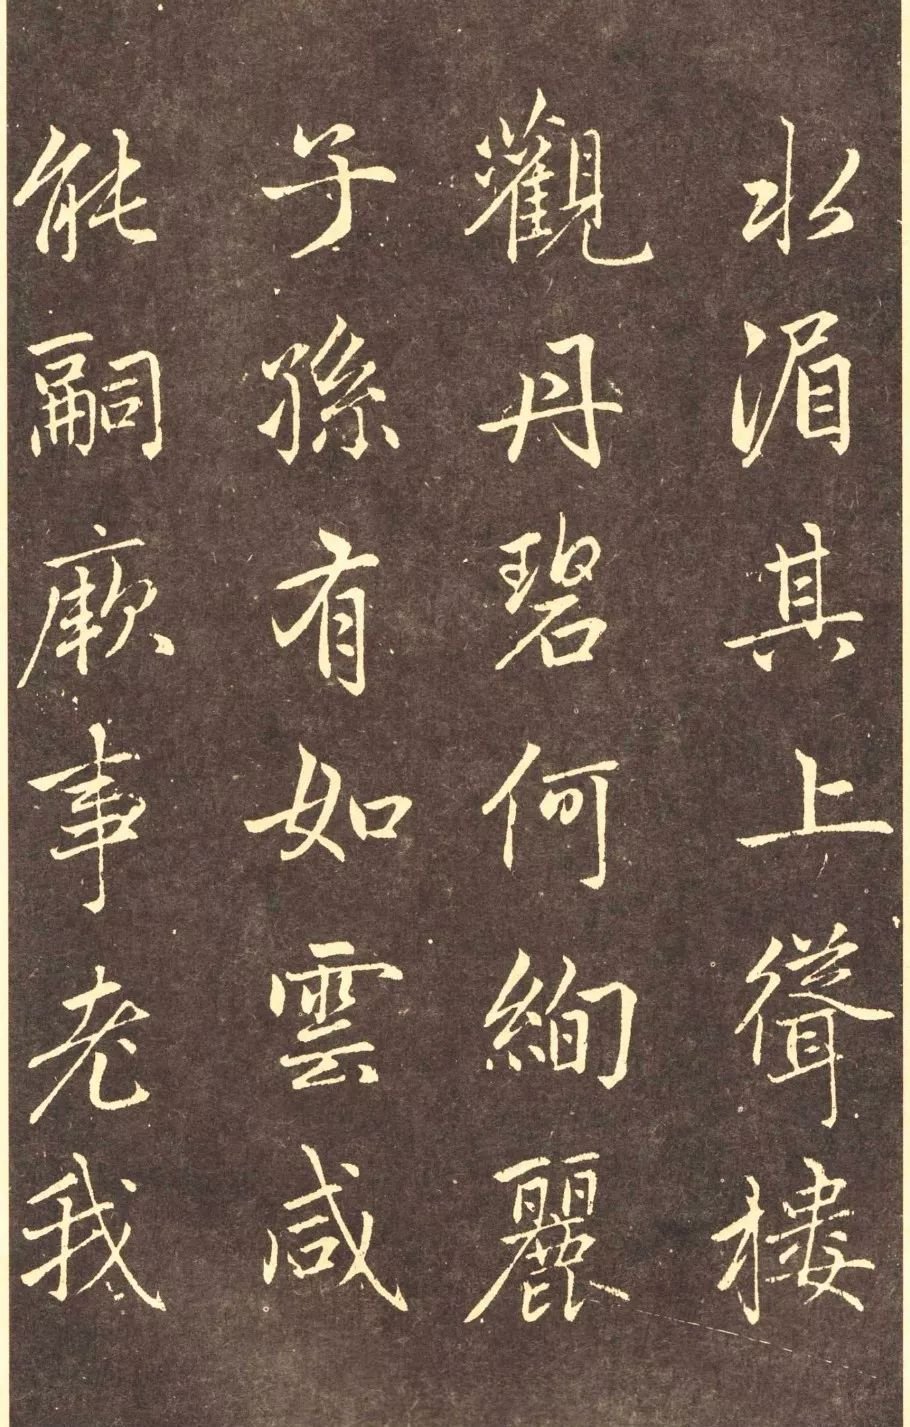 水湄其上聳樓
觀丹碧何絢麗
子孫有如雲咸
能嗣厥事老我